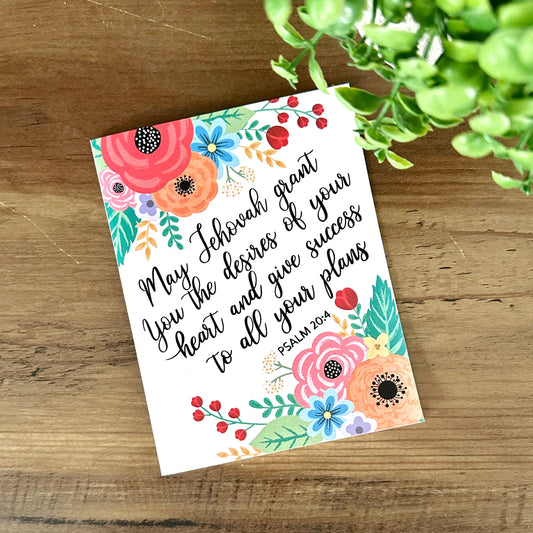 May Jehovah grant
You the desires of your
heart and give success
to all your plans
PSALM 20:4